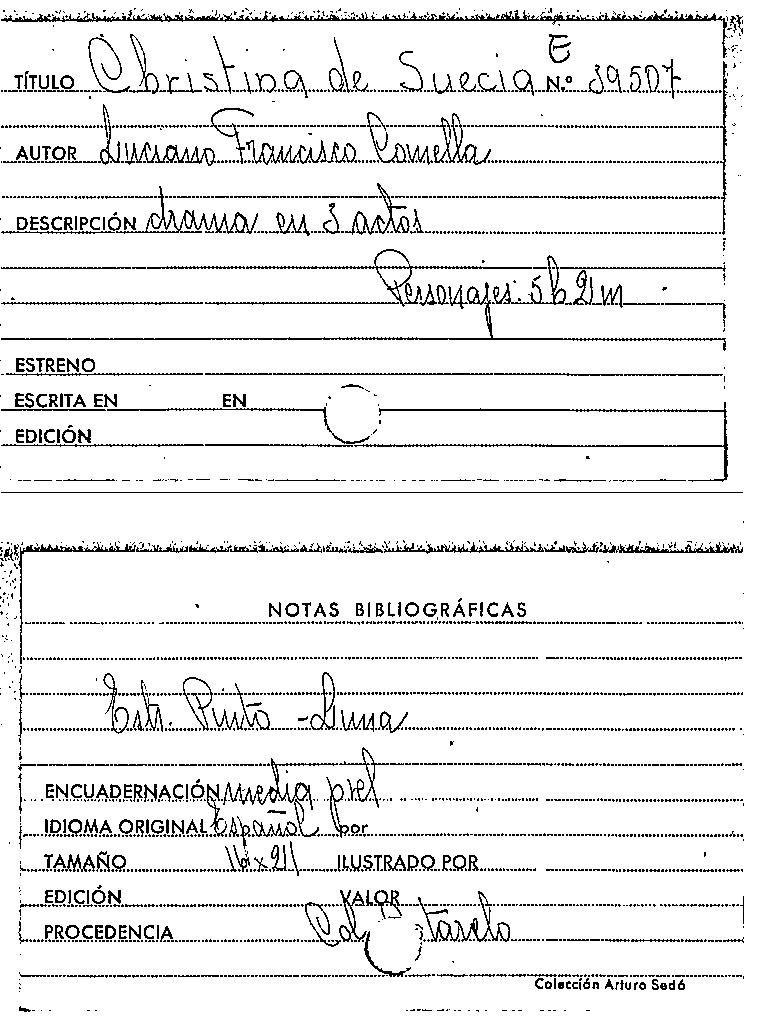 E
TÍTULO Christina de Suecia N.º 39507
AUTOR Luciano Francisco Comella
DESCRIPCIÓN drama en 3 actos
Personajes: 5 h 2 m
ESTRENO
ESCRITA EN EN
EDICIÓN
NOTAS BIBLIOGRÁFICAS
Estr. Pinto - Luna
ENCUADERNACIÓN media piel
IDIOMA ORIGINAL Español por
TAMAÑO ILUSTRADO POR
EDICIÓN VALOR
PROCEDENCIA Col.
Colección Arturo Sedó